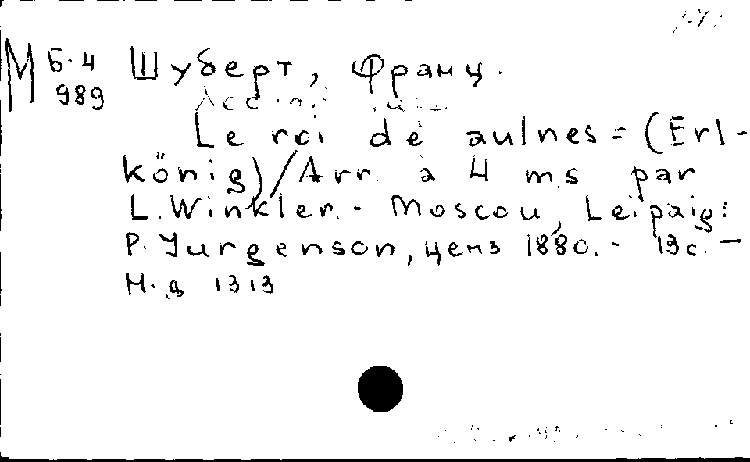 М Б-4 Шуберт, Франц.
989
Le roi de aulnes = (Erl-
könig) / Arr. à 4 ms par
L. Winkler. - Moscou, Leipzig:
P. Jurgenson, ценз 1880. - 13 с. -
Н. д. 1313